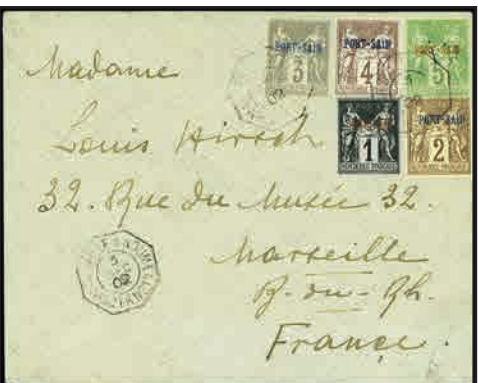 PORT-SAID PORT-SAID PORT-SAID
3 4 5
Madame
PORT-SAID
1 2
Louis Hirsch
32. Rue du Musée 32.
Marseille
B.-du-Rh.
France.
02